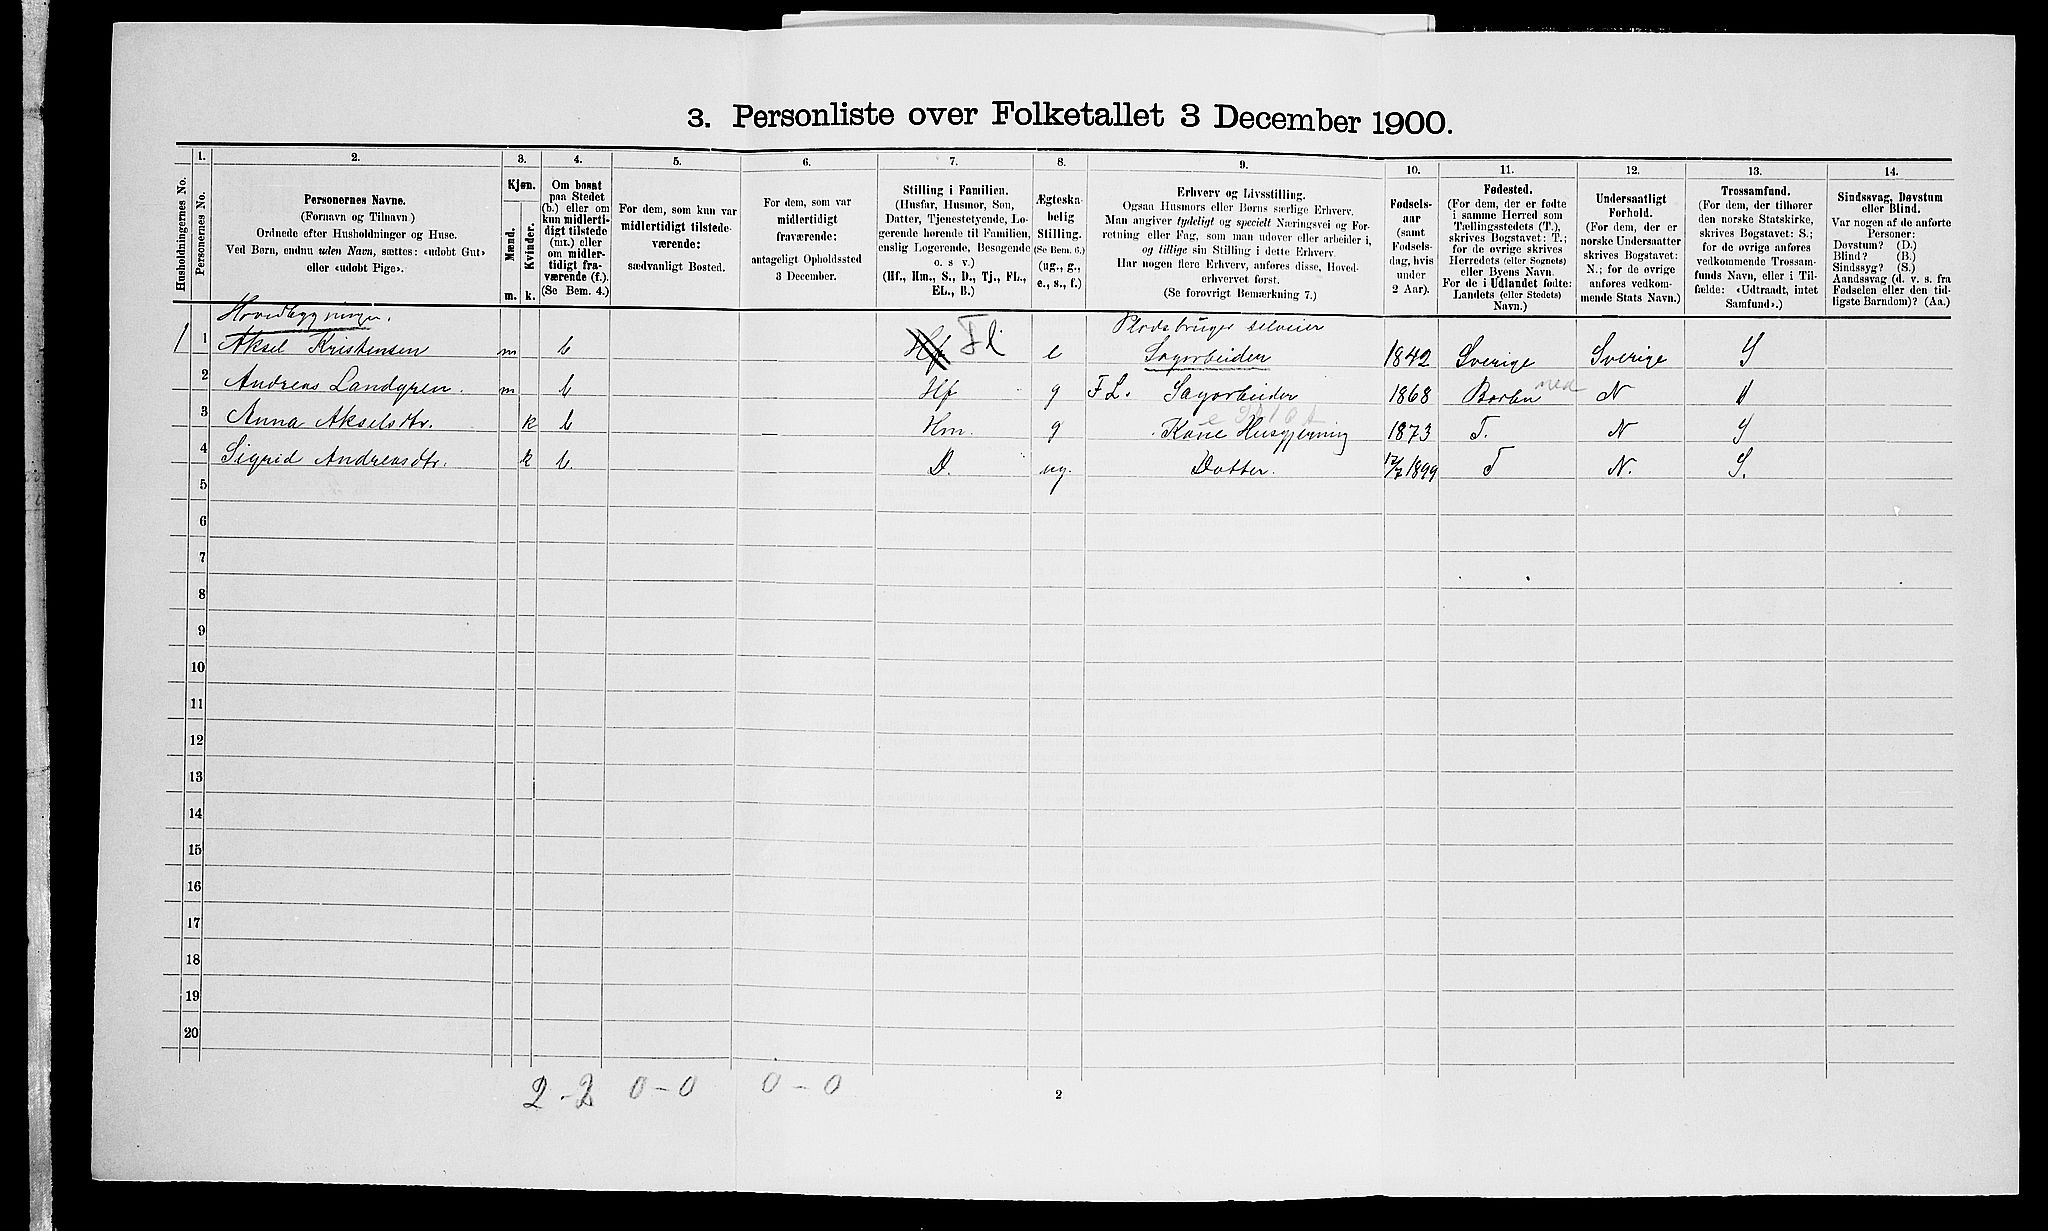 3. Personliste over Folketallet 3 December 1900.
Husholdningernes No.
1.
Personernes No.
2.
Personernes Navne.
(Fornavn og Tilnavn.)
Ordnede efter Husholdninger og Huse.
Ved Børn, endnu uden Navn, sættes: «udøbt Gut»
eller «udøbt Pige».
3.
Kjøn.
Mænd.
Kvinder.
m. k.
4.
Om bosat
paa Stedet
(b.) eller om
kun midlerti-
digt tilstede
(mt.) eller
om midler-
tidigt fra-
værende (f.).
(Se Bem. 4.)
5.
For dem, som kun var
midlertidigt tilstede-
værende:
sædvanligt Bosted.
6.
For dem, som var
midlertidigt
fraværende:
antageligt Opholdssted
3 December.
7.
Stilling i Familien.
(Husfar, Husmor, Søn,
Datter, Tjenestetyende, Lo-
gerende hørende til Familien,
enslig Logerende, Besøgende
o. s. v.)
(Hf., Hm., S., D., Tj., FL.,
EL., B.)
8.
Ægteska-
belig
Stilling.
(Se Bem. 6.)
(ug., g.,
e., s., f.)
9.
Erhverv og Livsstilling.
Ogsaa Husmors eller Børns særlige Erhverv.
Man angiver tydeligt og specielt Næringsvei og For-
retning eller Fag, som man udøver eller arbeider i,
og tillige sin Stilling i dette Erhverv.
Har nogen flere Erhverv, anføres disse, Hoved-
erhvervet først.
(Se forøvrigt Bemærkning 7.)
10.
Fødsels-
aar
(samt
Fødsels-
dag, hvis
under
2 Aar).
11.
Fødested.
(For dem, der er fødte
i samme Herred som
Tællingsstedets (T.),
skrives Bogstavet: T.;
for de øvrige skrives
Herredets (eller Sognets)
eller Byens Navn.
For de i Udlandet fødte:
Landets (eller Stedets)
Navn.)
12.
Undersaatligt
Forhold.
(For dem, der er
norske Undersaatter
skrives Bogstavet:
N.; for de øvrige
anføres vedkom-
mende Stats Navn.)
13.
Trossamfund.
(For dem, der tilhører
den norske Statskirke,
skrives Bogstavet: S.;
for de øvrige anføres
vedkommende Trossam-
funds Navn, eller i Til-
fælde: «Udtraadt, intet
Samfund».)
14.
Sindssvag, Døvstum
eller Blind.
Var nogen af de anførte
Personer:
Døvstum? (D.)
Blind? (B.)
Sindssyg? (S.)
Aandssvag (d. v. s. fra
Fødselen eller den tid-
ligste Barndom)? (Aa.)
Hovedbygningen.
Pladsbruger selveier
1 1 Aksel Kristensen m b Hf Fl e Sagarbeider 1842 Sverige Sverige S
2 Andreas Landgren. m b Hf g FL. Sagarbeider 1868 N
3 Anna Akselsdtr. k b Hm. g Kone Husgjerning 1873 T. N S
4 Sigrid Andreasdtr. k b D. ug. Datter. 12/7 1899 T N. S.
5
6
7
8
9
10
11
12
13
14
15
16
17
18
19
20
2 - 2 0 - 0 0 - 0
2